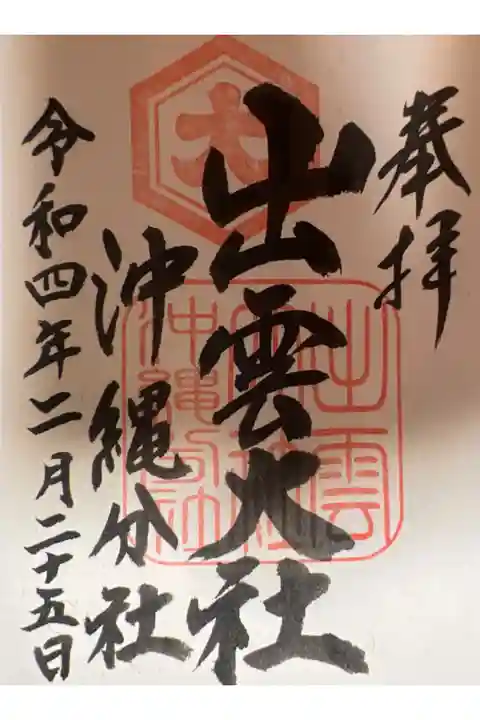 奉拝
出雲大社
沖縄分社
令和四年二月二十五日
大
出雲
沖縄分社